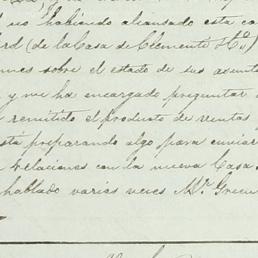 y no habiendo alcansado esta ca
rd (de la Casa de Clemente Hos)
nes sobre el estado de sus asunto
y me ha encargado preguntar
remitido el producto de ventas
stá preparando algo para enviar
relaciones con la nueva Casa
hablado varias veces Mr. Green